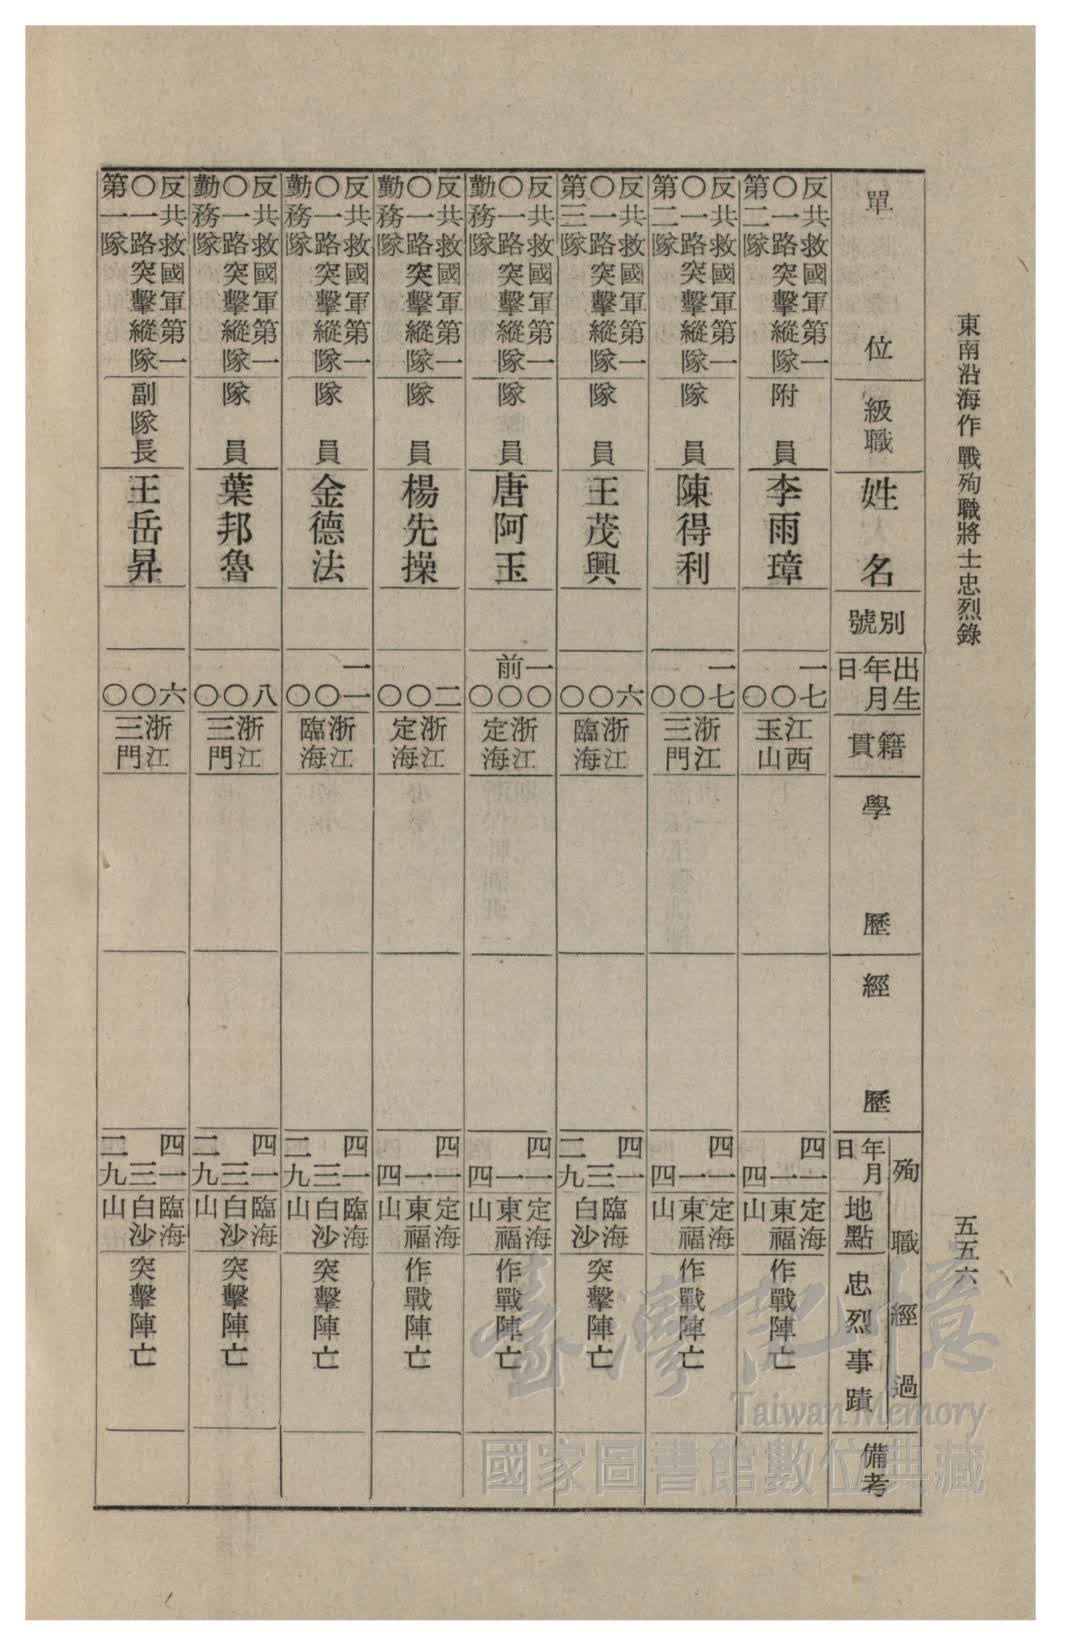 東南沿海作戰殉職將士忠烈錄
五五六
單位
級職
姓名
別號
出生
年月
日
籍貫
學歷
經歷
殉職經過
年月
日
地點
忠烈事蹟
備考
反共救國軍第一
〇一路突擊縱隊
第二隊
附員
李雨璋
一七
〇
〇
江西
玉山
四一
一
四
定海
東福
山
作戰陣亡
反共救國軍第一
〇一路突擊縱隊
第二隊
隊員
陳得利
一七
〇
〇
浙江
三門
四一
一
四
定海
東福
山
作戰陣亡
反共救國軍第一
〇一路突擊縱隊
第三隊
隊員
王茂興
六
〇
〇
浙江
臨海
四一
三
二九
臨海
白沙
突擊陣亡
反共救國軍第一
〇一路突擊縱隊
勤務隊
隊員
唐阿玉
前一〇
〇
〇
浙江
定海
四一
一
四
定海
東福
山
作戰陣亡
反共救國軍第一
〇一路突擊縱隊
勤務隊
隊員
楊先操
二
〇
〇
浙江
定海
四一
一
四
定海
東福
山
作戰陣亡
反共救國軍第一
〇一路突擊縱隊
勤務隊
隊員
金德法
一一
〇
〇
浙江
臨海
四一
三
二九
臨海
白沙
山
突擊陣亡
反共救國軍第一
〇一路突擊縱隊
勤務隊
隊員
葉邦魯
八
〇
〇
浙江
三門
四一
三
二九
臨海
白沙
山
突擊陣亡
反共救國軍第一
〇一路突擊縱隊
第一隊
副隊長
王岳昇
六
〇
〇
浙江
三門
四一
三
二九
臨海
白沙
山
突擊陣亡
臺灣記憶
Taiwan Memory
國家圖書館數位典藏